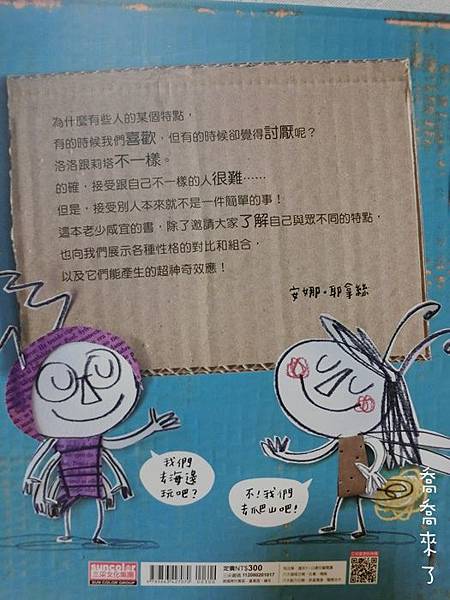 為什麼有些人的某個特點，
有的時候我們喜歡，但有的時候卻覺得討厭呢？
洛洛跟莉塔不一樣。
的確，接受跟自己不一樣的人很難……
但是，接受別人本來就不是一件簡單的事！
這本老少咸宜的書，除了邀請大家了解自己與眾不同的特點，
也向我們展示各種性格的對比和組合，
以及它們能產生的超神奇效應！
安娜・耶拿絲
我們
去海邊
玩吧？
不！我們
去爬山吧！
喬喬來了
suncolor
三采文化集團
SUN COLOR GROUP
定價NT$300